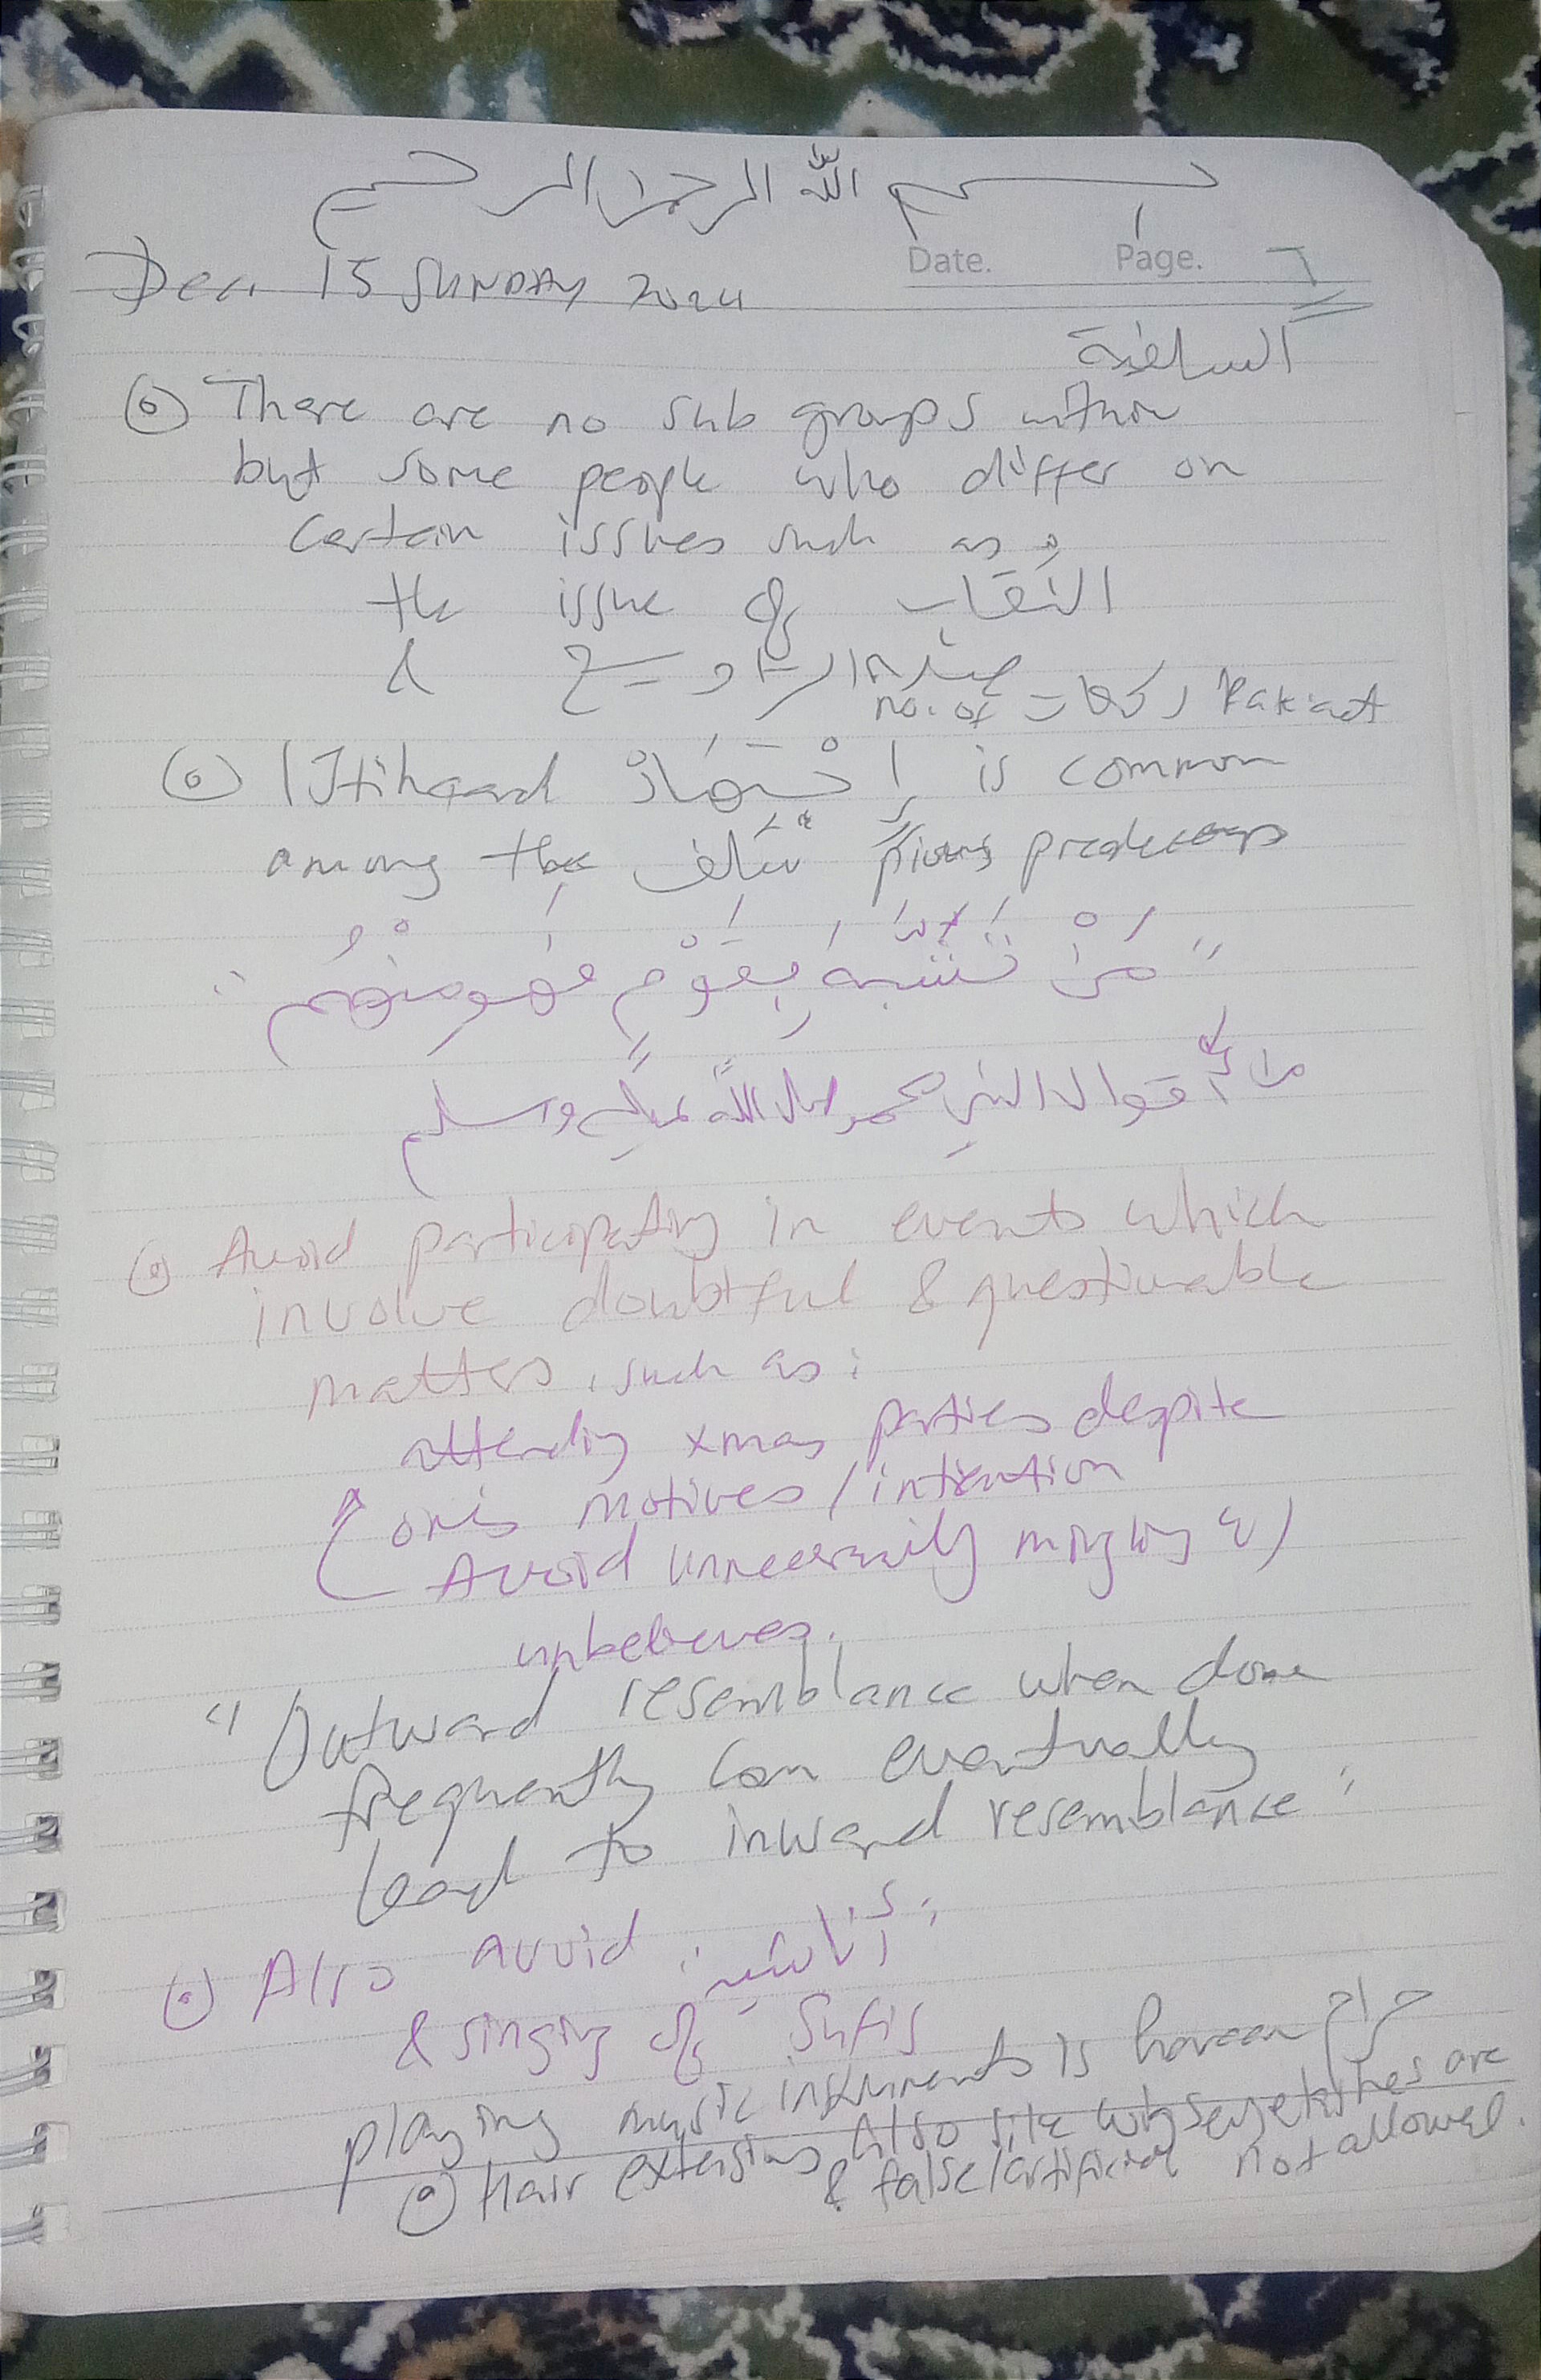 بسم الله الرحمن الرحيم
Date. Page.
Dec. 15 SUNDAY 2024
السلفية
There are no sub groups within
but some people who differ on
certain issues such as
the issue of النقاب
& صلاة التراويح
no. of ركعات Raka'at
Ijtihaad إجتهاد is common
among the سلف pious predecessors
"مَنْ تَشَبَّهَ بِقَوْمٍ فَهُوَ مِنْهُمْ"
من أقوال النبي محمد صلى الله عليه وسلم
Avoid participating in events which
involve doubtful & questionable
matters, such as:
attending xmas parties despite
one's motives/intention
Avoid unnecessarily mingling w/
unbelievers.
"Outward resemblance when done
frequently can eventually
lead to inward resemblance"
Also avoid: أناشيد
& singing of Sufis
playing music instruments is haram حرام
Hair extensions Also like wigs eyelashes are
& false/artificial not allowed.